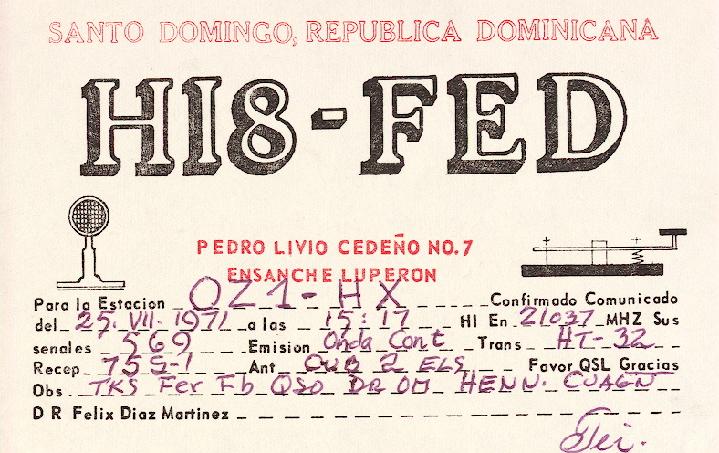 SANTO DOMINGO, REPUBLICA DOMINICANA
HI8-FED
PEDRO LIVIO CEDEÑO NO.7
ENSANCHE LUPERON
Para la Estacion OZ1-HX Confirmado Comunicado
del 25. VII. 1971 a las 15:17 HI En 21037 MHZ Sus
señales 569 Emision Onda Cont Trans HT-32
Recep 75S-1 Ant CUB 2 ELS Favor QSL Gracias
Obs TKS Fer Fb QSO DR OM HENN. CUAGN
D R Felix Diaz Martinez